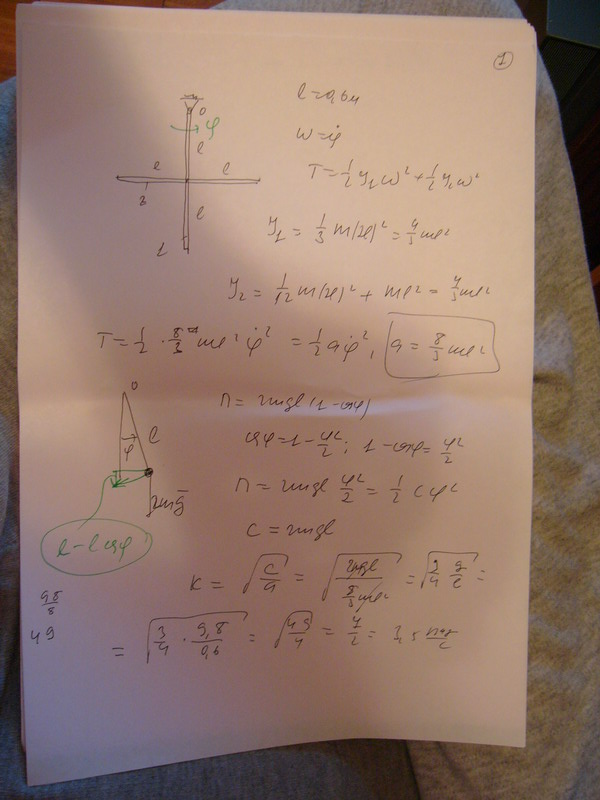 1
l = 0,6 м
O
φ
l
l
l
l
3
1
ω = φ̇
T = 1/2 J₁ω² + 1/2 J₂ω²
J₁ = 1/3 m(2l)² = 4/3 ml²
J₂ = 1/12 m(2l)² + ml² = 4/3 ml²
T = 1/2 · 8/3 ml² φ̇² = 1/2 aφ̇², a = 8/3 ml²
O
φ
l
2mg̅
l - l cosφ
П = 2mgl (1 - cosφ)
cosφ = 1 - φ²/2; 1 - cosφ = φ²/2
П = 2mgl φ²/2 = 1/2 cφ²
c = 2mgl
k = √(c/a) = √(2mgl / (8/3 ml²)) = √(3/4 g/l) =
98/8
49
= √(3/4 · 9,8/0,6) = √(49/4) = 7/2 = 3,5 рад/с